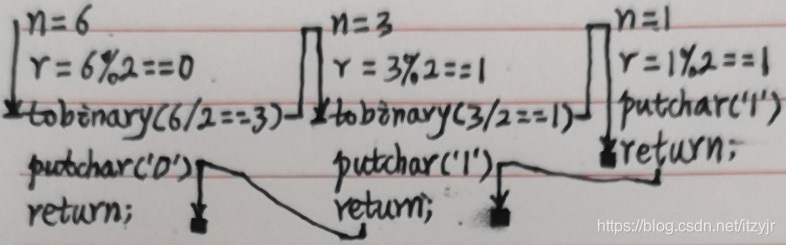 n=6
r=6%2==0
tobinary(6/2==3)
putchar('0')
return;
n=3
r=3%2==1
tobinary(3/2==1)
putchar('1')
return;
n=1
r=1%2==1
putchar('1')
return;
https://blog.csdn.net/itzyjr